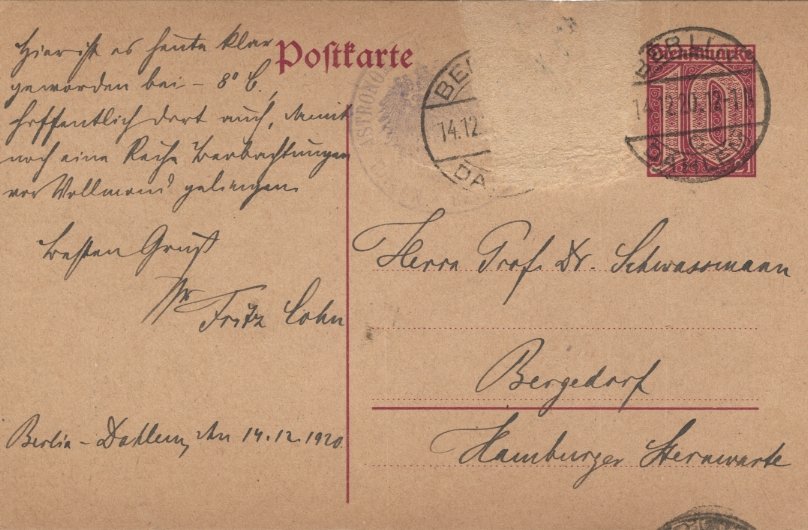 Hier ist es heute klar
geworden bei - 8° C,
hoffentlich dort auch, damit
noch eine Reihe Beobachtungen
vor Vollmond gelingen.
Besten Gruß
Ihr
Fritz Cohn
Berlin - Dahlem, den 14.12.1920.
Postkarte
BERLIN
14.12.20. 12-1 N
DAHLEM
Herrn Prof. Dr. Schwassmann
Bergedorf
Hamburger Sternwarte